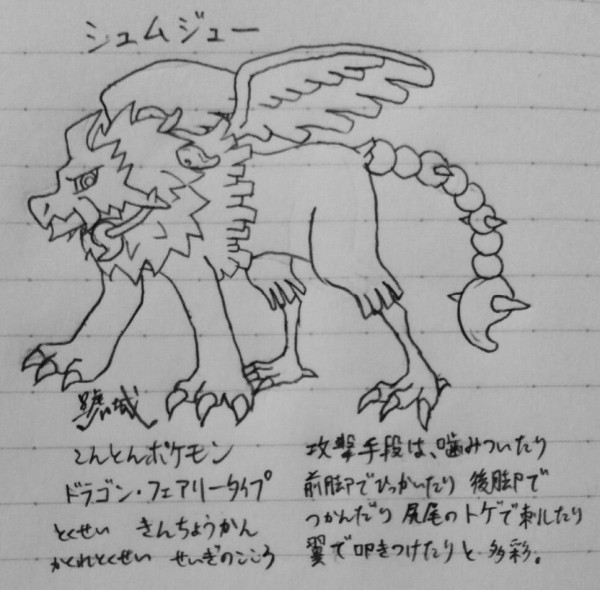 シュムジュー
城
こんとんポケモン
ドラゴン・フェアリータイプ
とくせい きんちょうかん
かくれとくせい せいぎのこころ
攻撃手段は、噛みついたり
前脚でひっかいたり 後脚で
つかんだり 尻尾のトゲで刺したり
翼で叩きつけたりと多彩。